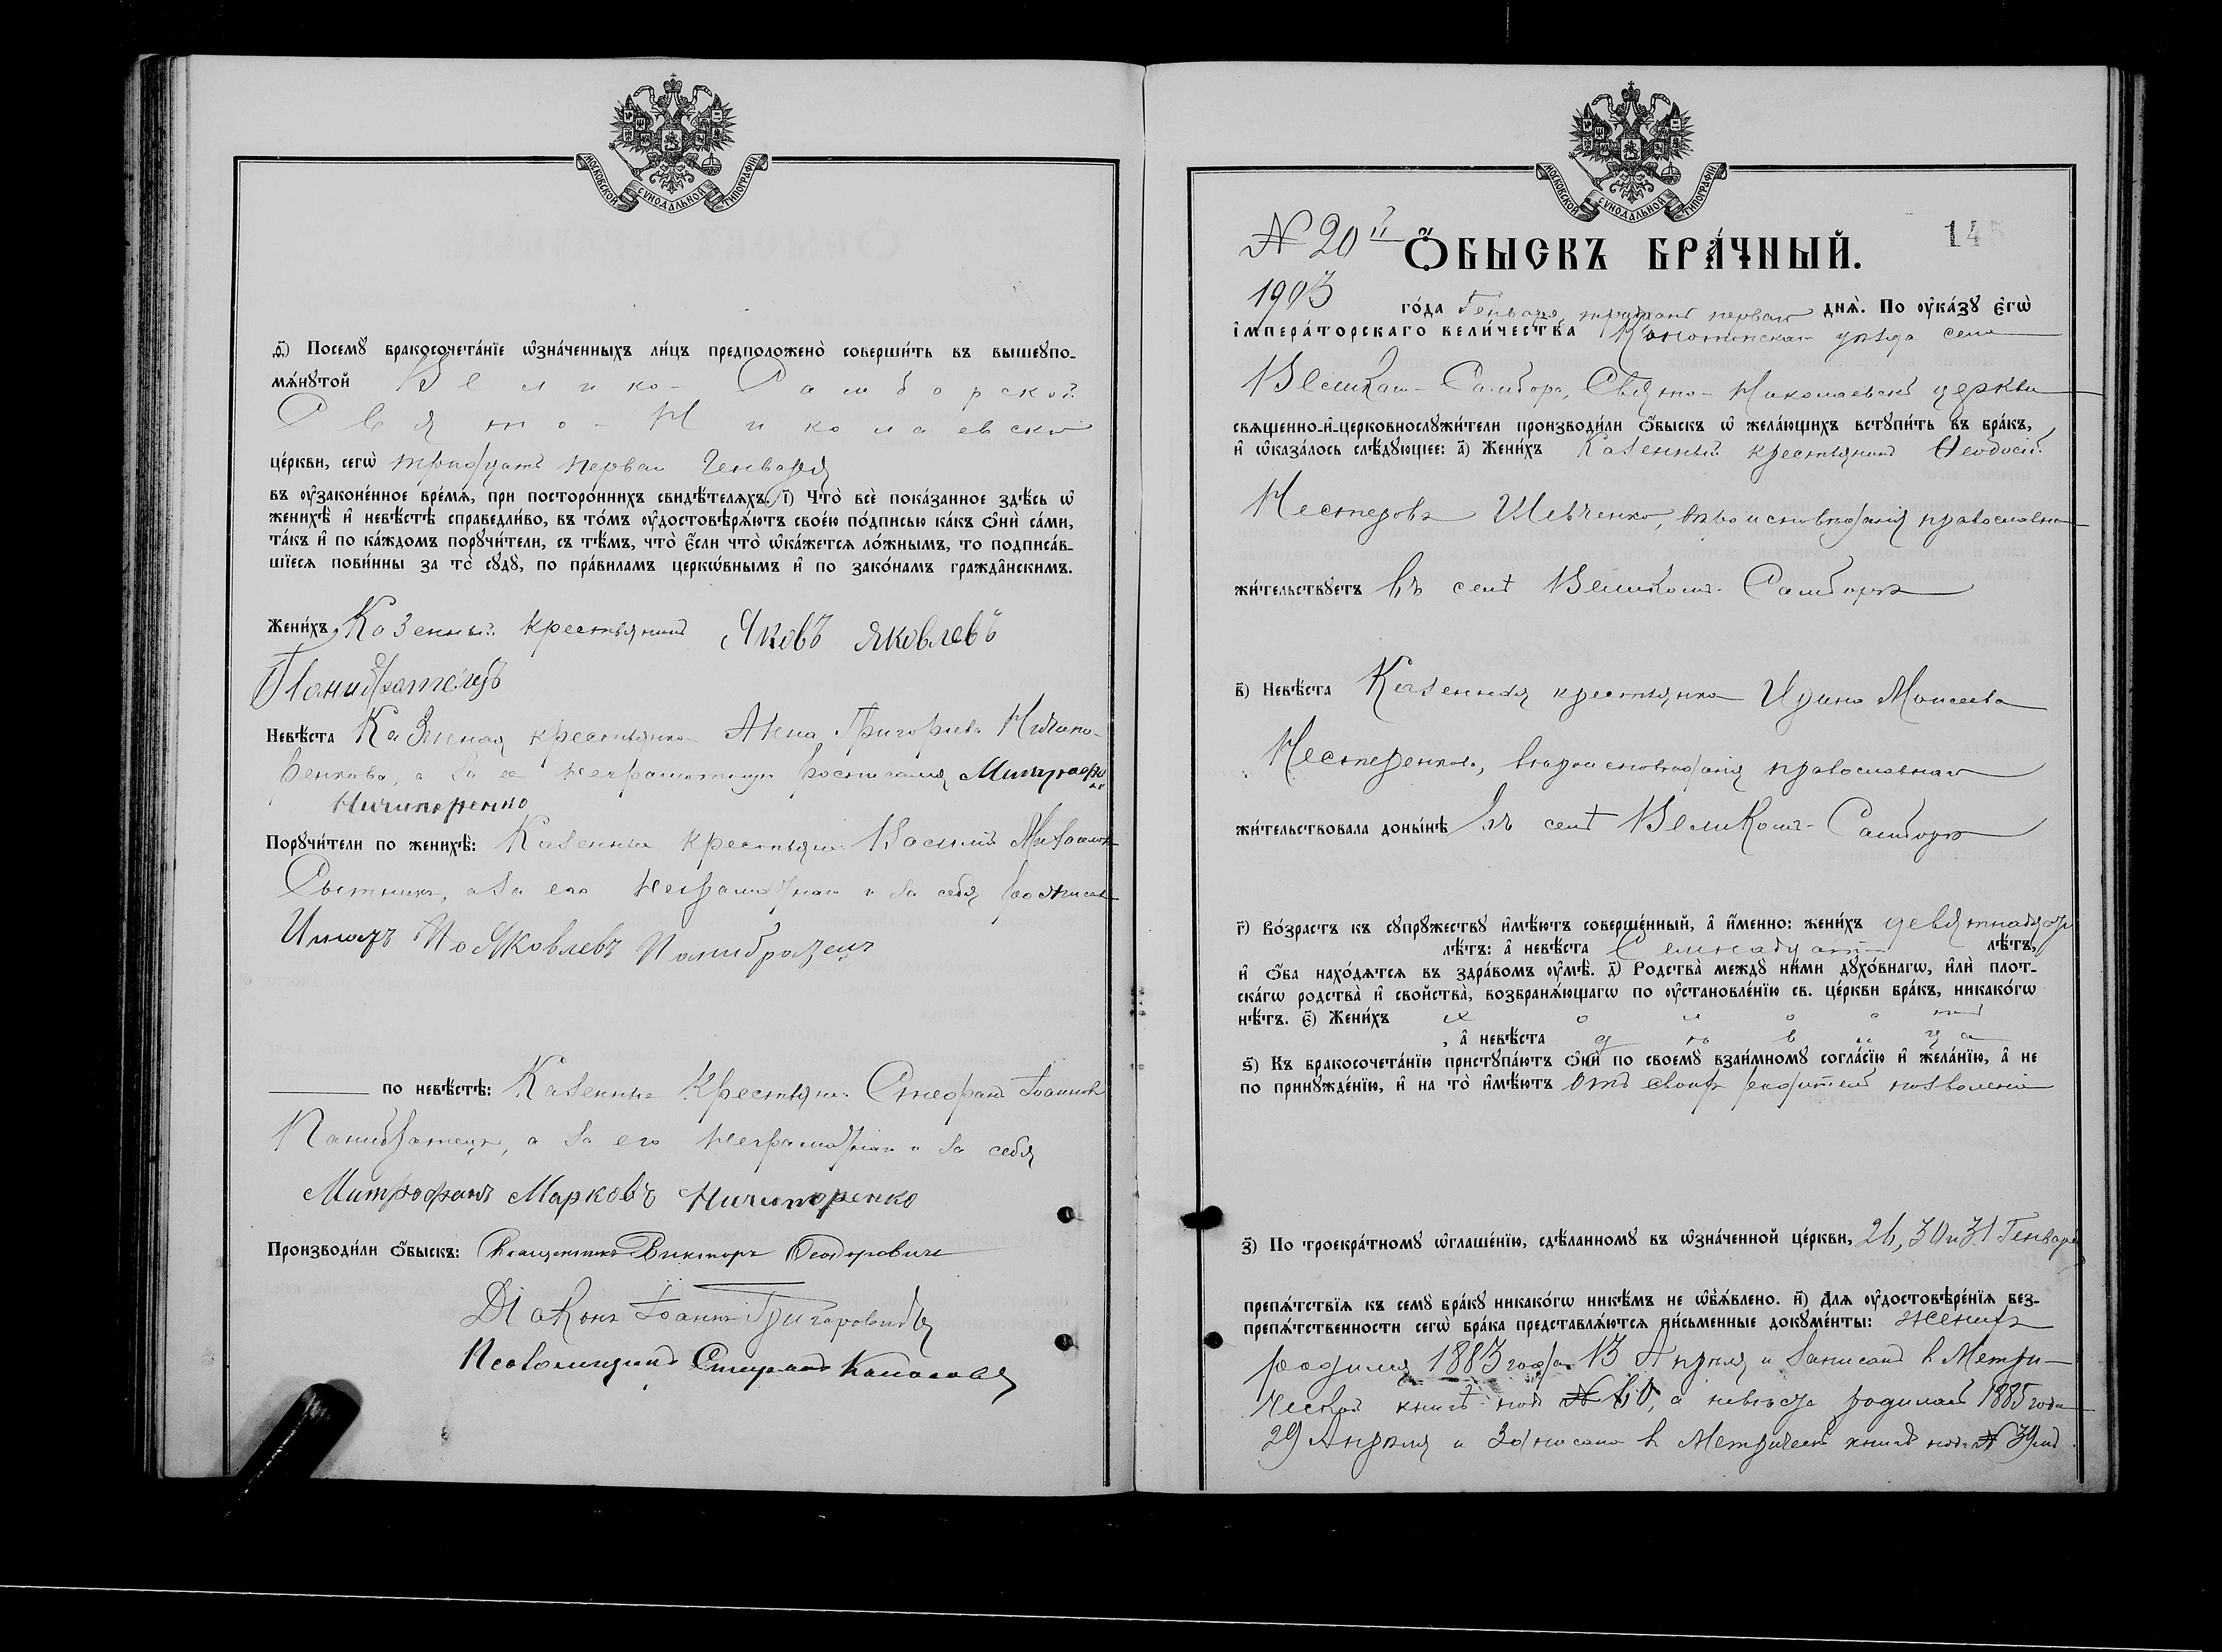 МОСКОВСКОЙ СУНОДАЛЬНОЙ ТИПОГРАФІИ
д҃) Посемꙋ̀ бракосочета́нїе ѡ҆зна́ченныхъ ли́цъ предположено̀ соверши́ть въ вышеꙋпо-
мѧ́нꙋтой Велико-Самборской
Свято-Николаевской
це́ркви, сегѡ̀ тридцать перваго Генваря
въ ᲂу҆зако́ненное вре́мѧ, при посторо́ннихъ свидѣ́телѧхъ. і҃) Что̀ всѐ пока́занное здѣ́сь ѡ҆
женихѣ̀ и҆ невѣ́стѣ справедли́во, въ то́мъ ᲂу҆достовѣрѧ́ютъ свое́ю по́дписью ка́къ ѻ҆нѝ са́ми,
та́къ и҆ по ка́ждомъ порꙋчи́тели, съ тѣ́мъ, что̀ є҆́сли что̀ ѡ҆ка́жется ло́жнымъ, то подписа́в-
шїеся пови́нны за то̀ сꙋдꙋ̀, по пра́виламъ церкѡ́внымъ и҆ по зако́намъ гражда̂нскимъ.
Жени́хъ Козенный крестьянинъ Яковъ Яковлевъ
Панибратецъ
Невѣ́ста Казенная крестьянка Анна Григорьева Ничипо-
ренкова, а за ее неграмотную росписался Митрофан
Ничипоренко
Порꙋчи́тели по женихѣ̀: Казенные крестьяне Василий
Сытникъ, а за его неграмотнаго и за себя росписался
Яковлевъ Панибратецъ
по невѣ́стѣ: Казенные Крестьяне Стефанъ Іоанновъ
Панибратецъ, а за его неграмотнаго и за себя
Митрофанъ Марковъ Ничипоренко
Производи́ли ѻ҆́быскъ: Священникъ Викторъ Ѳеодоровичъ
Діаконъ Іоаннъ Григоровичъ
Псаломщикъ
МОСКОВСКОЙ СУНОДАЛЬНОЙ ТИПОГРАФІИ
№ 20й
145
Ѻ҆́БЫСКЪ БРА́ЧНЫЙ.
1903 го́да Генваря тридцать перваго днѧ̀. По ᲂу҆ка́зꙋ є҆гѡ̀
і҆мпера́торскаго вели́чества Конотопскаго уѣзда села
Великаго-Самбора, Свято-Николаевской церкви
свѧщенно-и҆-церковнослꙋжи́тели производи́ли ѻ҆́быскъ ѡ҆ жела́ющихъ встꙋпи́ть въ бра́къ,
и҆ ѡ҆каза́лось слѣ́дꙋющее: а҃) Жени́хъ Казенный крестьянинъ Ѳеодосій
Нестеровъ Шевченко, вѣроисповѣданія православнаго
жи́тельствꙋетъ въ селѣ Великомъ-Самборѣ
в҃) Невѣ́ста Казенная крестьянка Ирина Моисеева
Нестеренкова, вѣроисповѣданія православнаго
жи́тельствовала доны́нѣ въ селѣ Великомъ-Самборѣ
г҃) Во́зрастъ къ сꙋпрꙋ́жествꙋ и҆мѣ́ютъ соверше́нный, а҆ и҆́менно: жени́хъ девятнадцать
лѣ́тъ: а҆ невѣ́ста Семнадцать лѣ́тъ,
и҆ ѻ҆́ба нахо́дятся въ здра́вомъ ᲂу҆мѣ̀. д҃) Родства̀ междꙋ̀ ни́ми дꙋхо́внагѡ, и҆лѝ плот-
ска́гѡ родства̀ и҆ сво́йства, возбранѧ́ющагѡ по ᲂу҆становле́нїю св. це́ркви бра́къ, никако́гѡ
нѣ́тъ. є҃) Жени́хъ холостъ
, а҆ невѣ́ста дѣвица
ѕ҃) Къ бракосочета́нїю пристꙋпа́ютъ ѻ҆нѝ по своемꙋ̀ взаи́мномꙋ согла́сїю и҆ жела́нїю, а҆ не
по принꙋжде́нїю, и҆ на то̀ и҆мѣ́ютъ отъ своихъ родителей позволеніе
з҃) По троекра́тномꙋ ѡ҆глаше́нїю, сдѣ́ланномꙋ въ ѡ҆зна́ченной це́ркви, 26, 30 и 31 Генваря
препѧ́тствїѧ къ семꙋ̀ бра́кꙋ никако́гѡ никѣ́мъ не ѡ҆б̾ѧ́влено. и҃) Для ᲂу҆достовѣре́нїѧ без-
препѧ́тственности сегѡ̀ бра́ка представлѧ́ются пи́сьменные докꙋме́нты: женихъ
родился 1883 года 13 Апрѣля и записанъ в Метри-
ческой книгѣ под № 60, а невѣста родилась 1885 года
29 Апрѣля и записана в Метрической книгѣ подъ № 39мъ